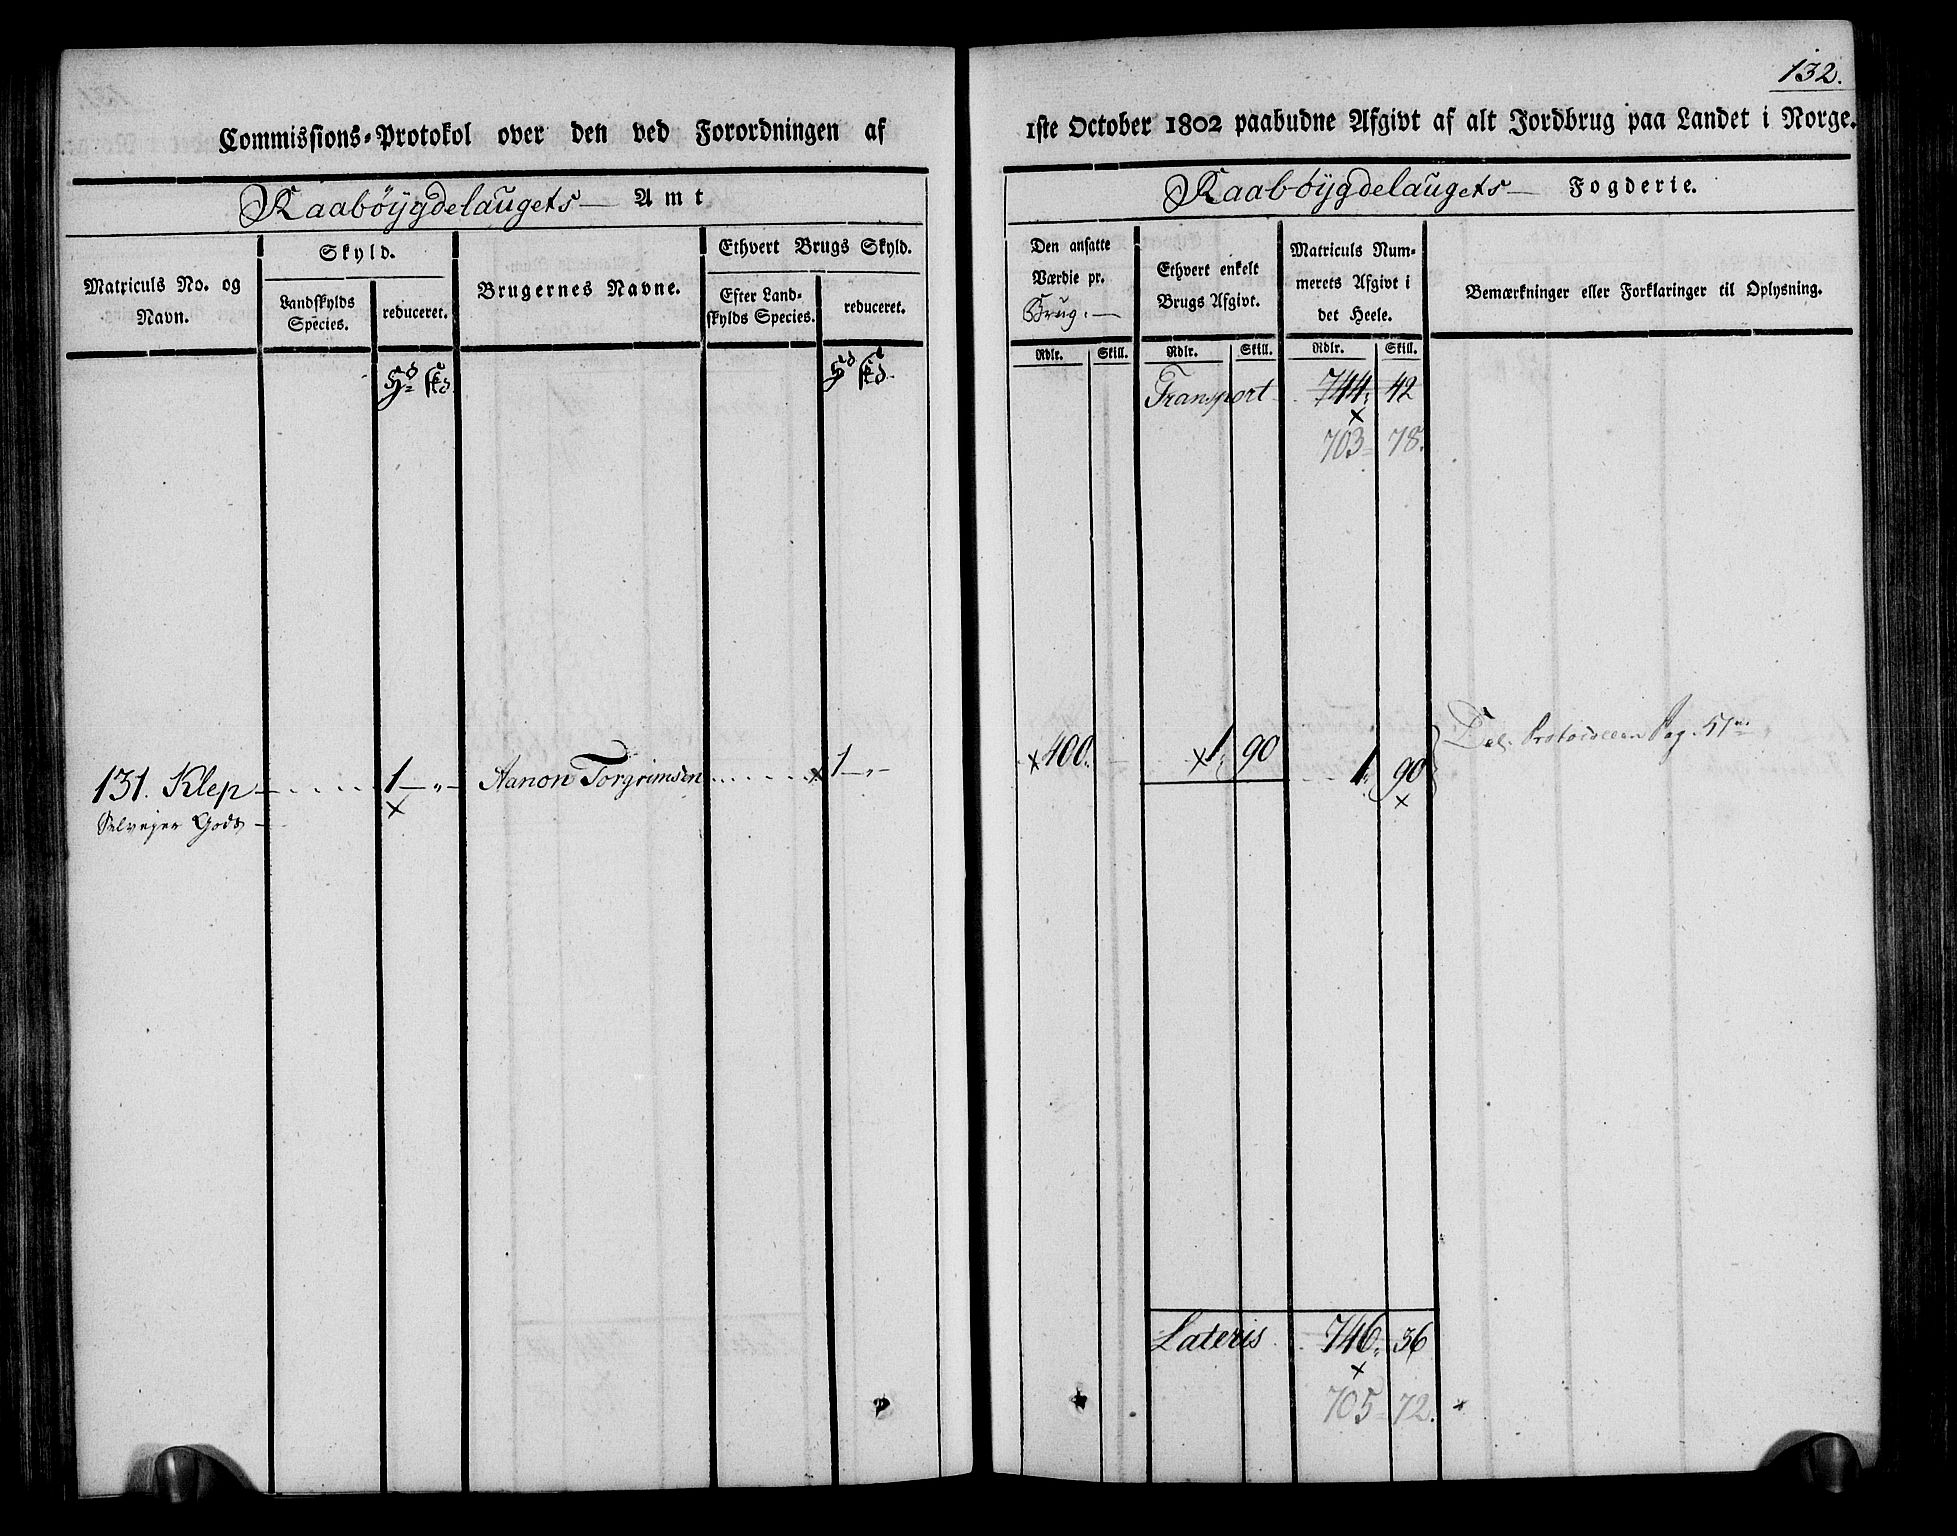 132.
Commissions-Protokol over den ved Forordningen af
1ste October 1802 paabudne Afgivt af alt Jordbrug paa Landet i Norge.
Raabøygdelaugets Amt
Raabøygdelaugets Fogderie.
Matriculs No. og Navn.
Skyld.
Landskylds Species.
reduceret.
Brugernes Navne.
Ethvert Brugs Skyld.
Efter Landskylds Species.
reduceret.
Den ansatte Værdie pr. Brug.
Ethvert enkelt Brugs Afgivt.
Matriculs Nummerets Afgivt i det Heele.
Bemærkninger eller Forklaringer til Oplysning.
Rdlr. Skill. Rdlr. Skill. Rdlr. Skill.
Transport 744 42
703 78.
131. Klep 1 — „ — Aanon Torgrimsen 1 — „ — 400. 1 90 1 90 Del. Protocollen Pag. 51
Selvejer Gods
Lateris 746 36
705 72.